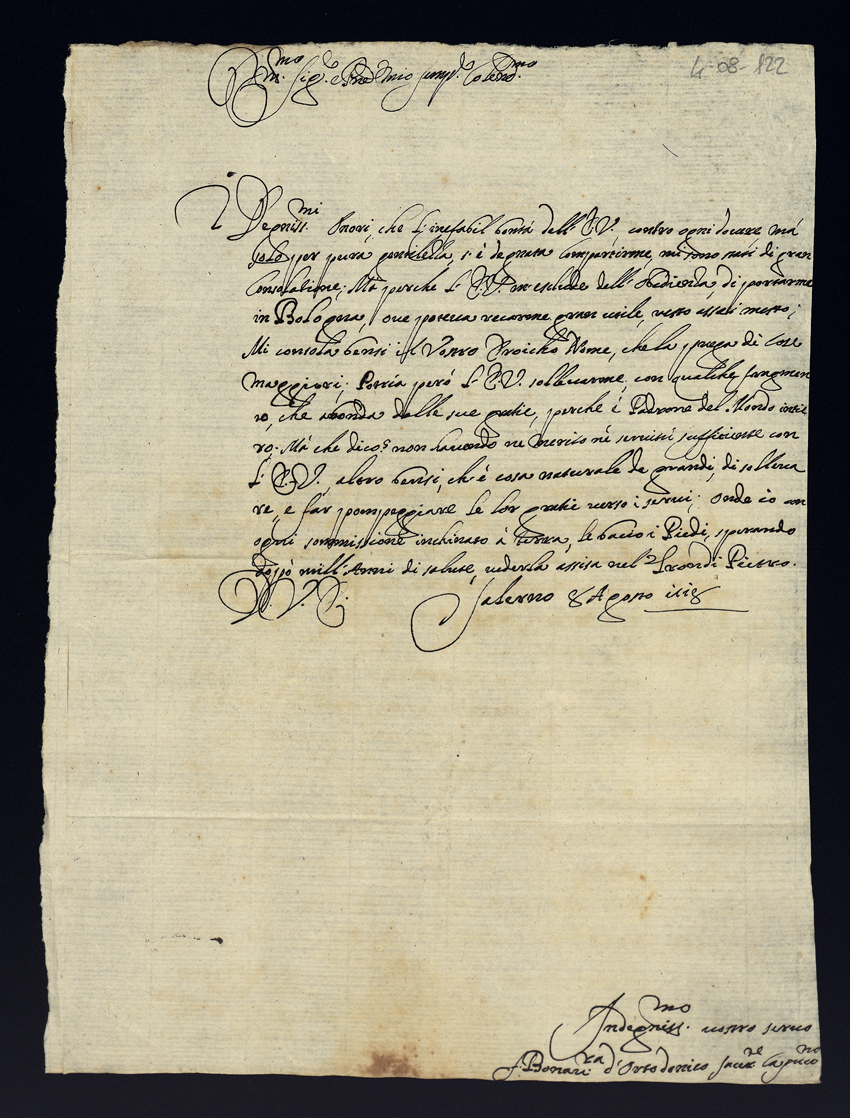 4-08-122
Em.mo Sig.re e Pne mio semp.e Colend.mo
I Degniss.mi favori, che l'inefabil bontà dell'E.V. contro ogni dovere mà
solo per pura gentilezza, s'è degnata Compartirme, mi sono stati di gran
Consolatione; Mà perche l'E.V. m'esclude dell'Obedienza, di portarme
in Bologna, ove poteva recarme gran utile, resto assai mesto;
Mi consola bensi il Vostro Nome, che la di Cose
maggiori; Potria però l'E.V. sollevarme, con qualche
che abonda delle sue gratie, perche è Padrone del Mondo intie
ro. Mà che dico? non havendo ne merito nè servitù sufficiente con
l'E.V., altro bensi, ch'è cosa naturale de grandi, di solleva
re, e far pompeggiare le lor gratie verso i servi; Onde io con
ogni sommissione inchinato à terra, le bacio i Piedi, sperando
doppò mill'Anni di salute, vederla assisa nel di Pietro.
D.V.E. Salerno 8 Agosto
Indegniss.mo vostro servo
f. Bonav.ra d'Ortodonico Capuccino